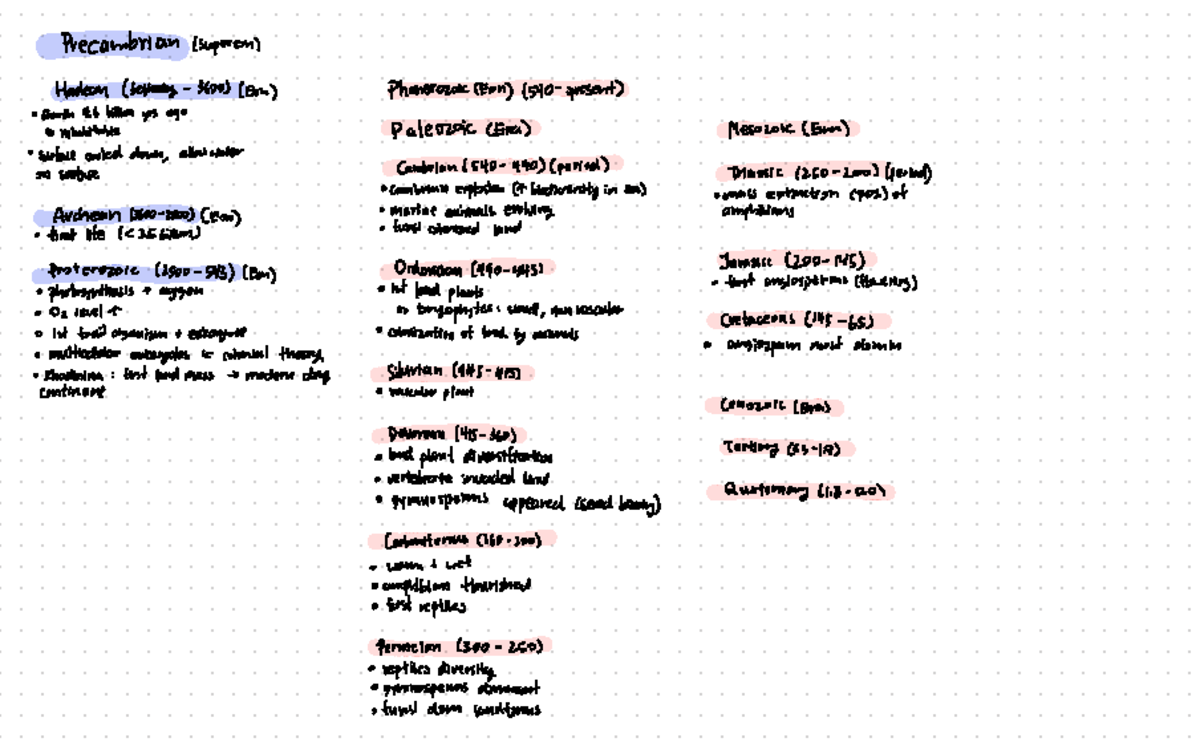 Precambrian (supereon)
Hadean ( - 3600) (Eon)
• Earth 4.6 billion yrs ago
• surface cooled down,
no surface
Archean (3600-2500) (Eon)
• first life (< 3.5 billion)
Proterozoic ( - 543) (Eon)
• photosynthesis → oxygen
• O2 level ↑
• 1st fossil organism + eukaryote
• multicellular eukaryotes ← colonial theory
• : first land mass → modern day
continent
Phanerozoic (Eon) (540-present)
Paleozoic (Era)
Cambrian (540-490) (period)
• cambrian explosion (↑ biodiversity in sea)
• marine animals evolving
• fungi colonized land
Ordovician (490-445)
• 1st land plants
→ bryophytes: small, non vascular
• colonization of land by animals
Silurian (445-415)
• vascular plant
Devonian (415-360)
• land plant diversification
• vertebrate invaded land
• gymnosperms appeared (seed bearing)
Carboniferous (360-300)
• warm & wet
• amphibians flourished
• first reptiles
Permian (300-250)
• reptiles diversity
• gymnosperms dominant
• fungi
Mesozoic (Era)
Triassic (250-200) (period)
• mass extinction (90%) of
amphibians
Jurassic (200-145)
• first angiosperms (flowering)
Cretaceous (145-65)
• angiosperm most
Cenozoic (Era)
Tertiary (65-1.8)
Quaternary (1.8-0.0)